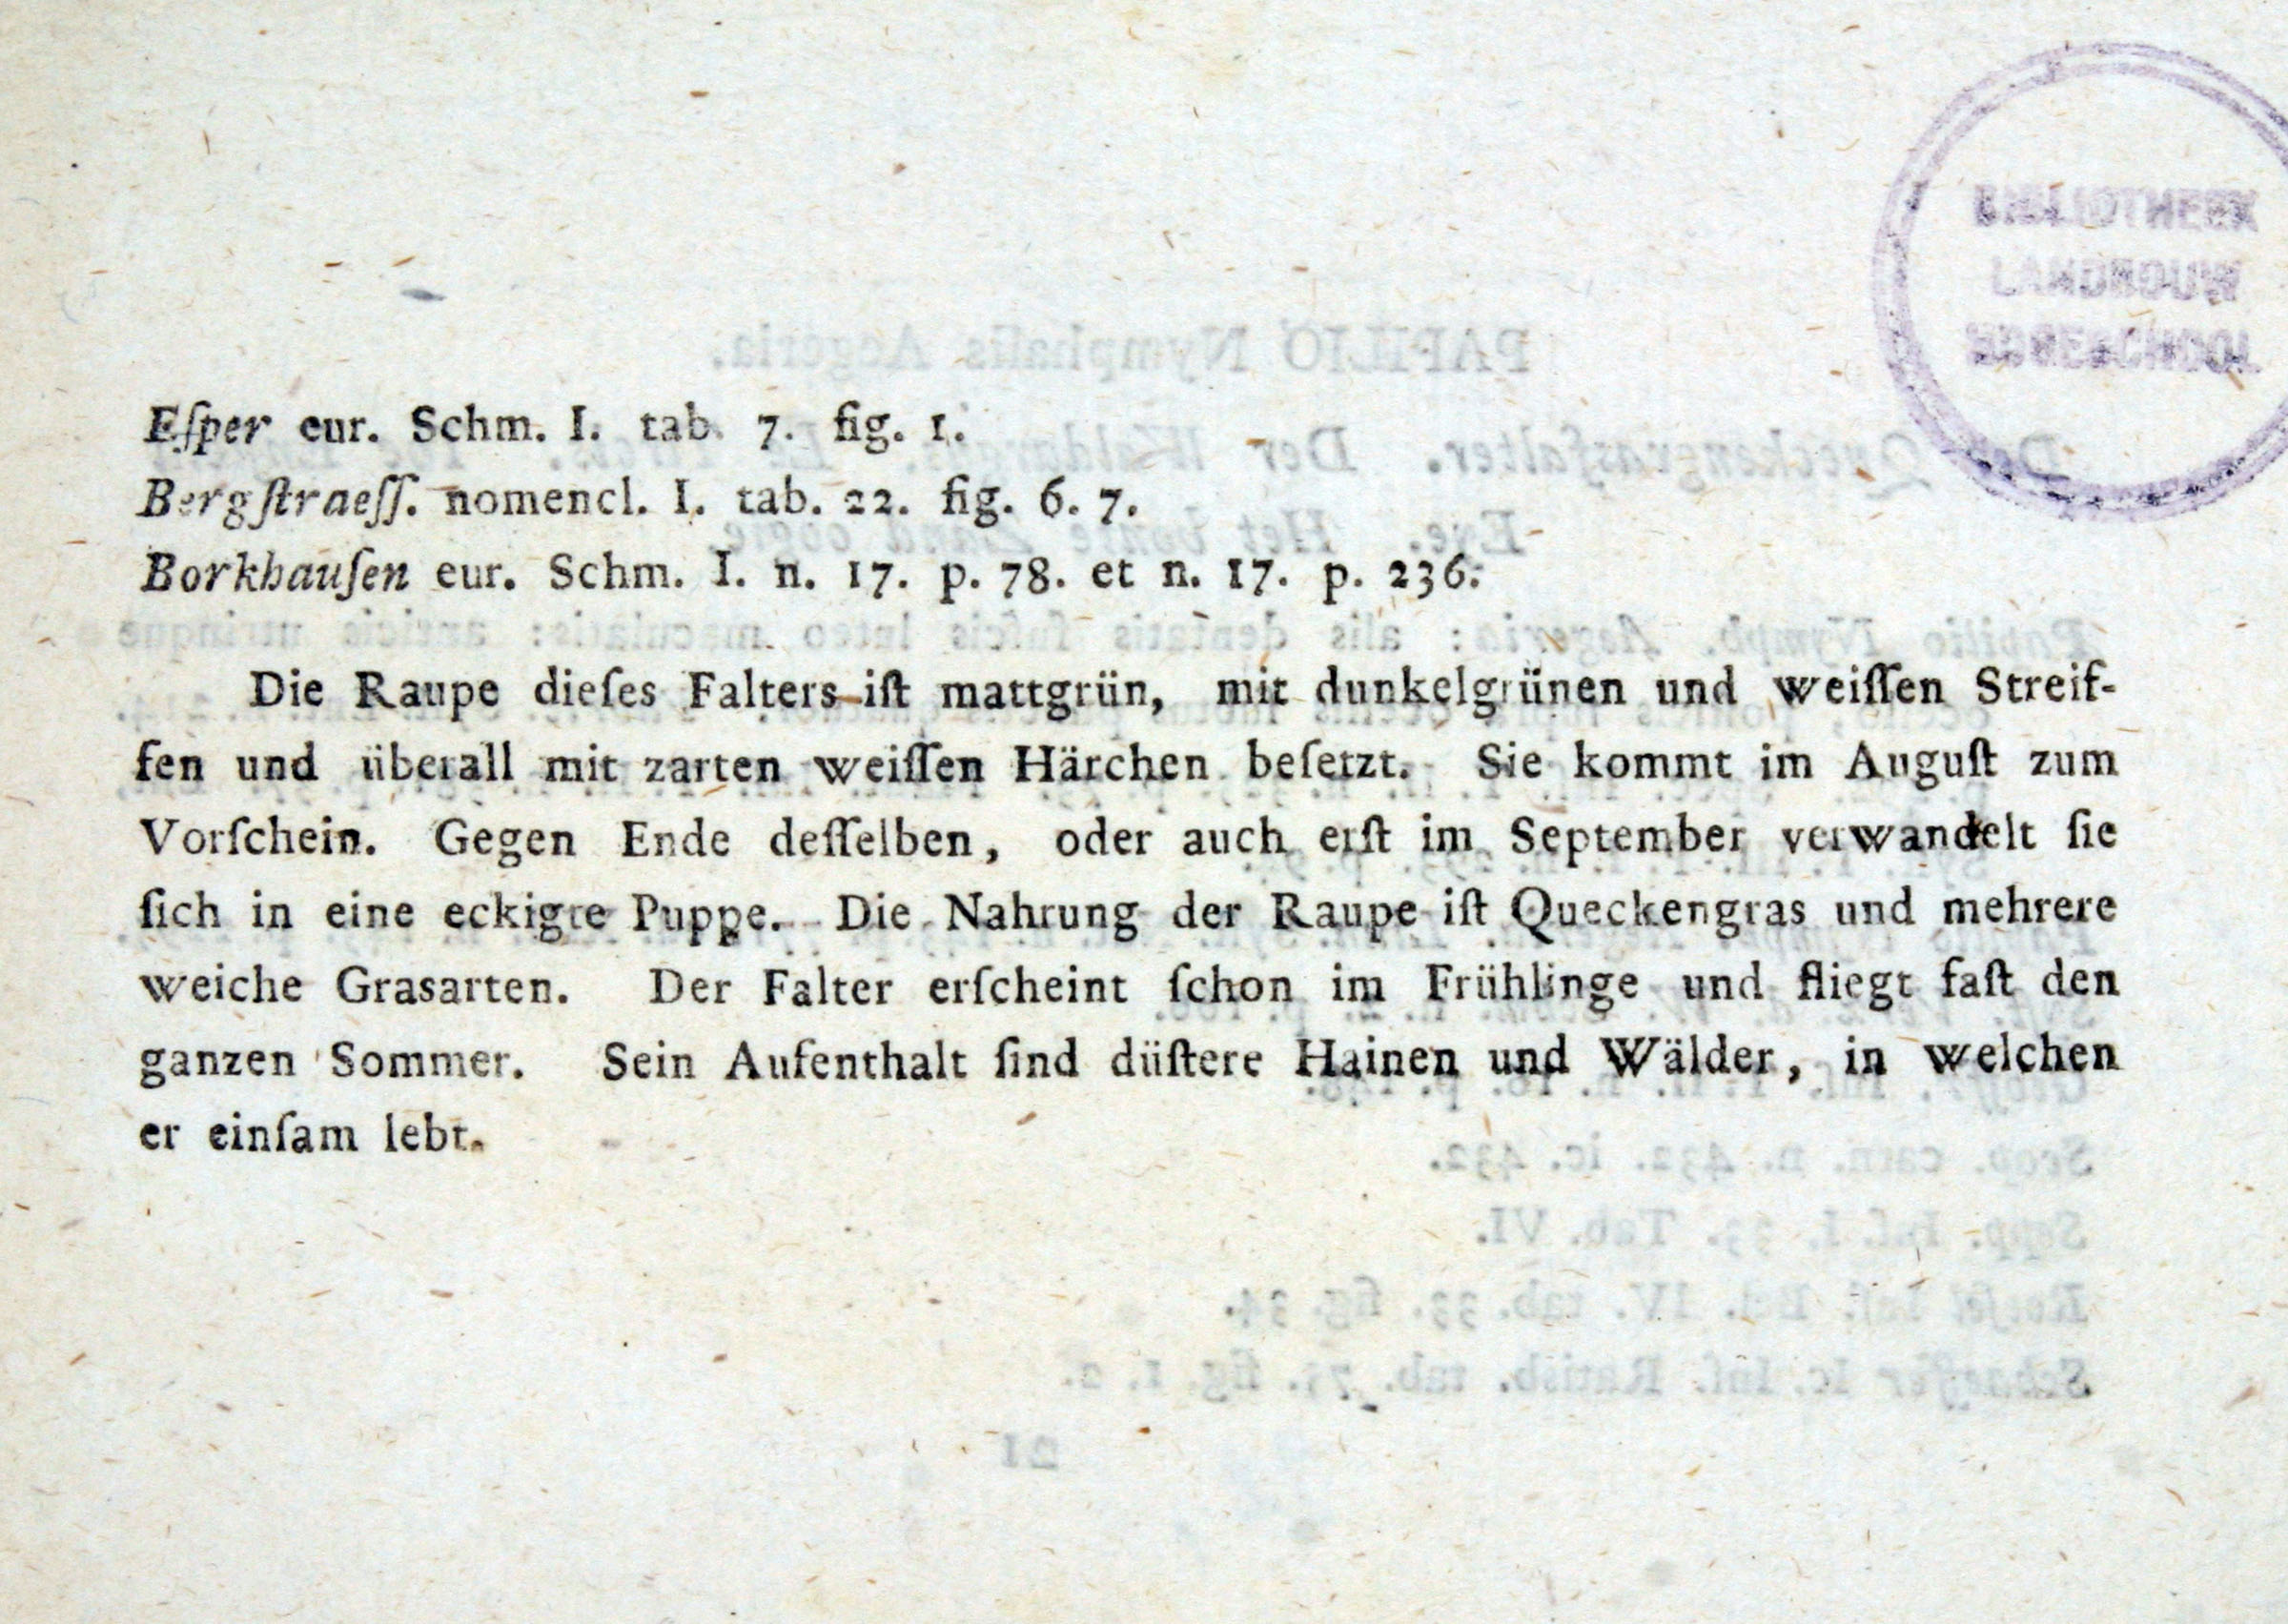 BIBLIOTHEEK
LANDBOUW
HOGESCHOOL
Eſper eur. Schm. I. tab. 7. fig. 1.
Bergſtraeſſ. nomencl. I. tab. 22. fig. 6. 7.
Borkhauſen eur. Schm. I. n. 17. p. 78. et n. 17. p. 236.
Die Raupe dieſes Falters iſt mattgrün, mit dunkelgrünen und weiſſen Streif-
fen und überall mit zarten weiſſen Härchen beſetzt. Sie kommt im Auguſt zum
Vorſchein. Gegen Ende deſſelben, oder auch erſt im September verwandelt ſie
ſich in eine eckigte Puppe. Die Nahrung der Raupe iſt Queckengras und mehrere
weiche Grasarten. Der Falter erſcheint ſchon im Frühlinge und fliegt faſt den
ganzen Sommer. Sein Aufenthalt ſind düſtere Hainen und Wälder, in welchen
er einſam lebt.